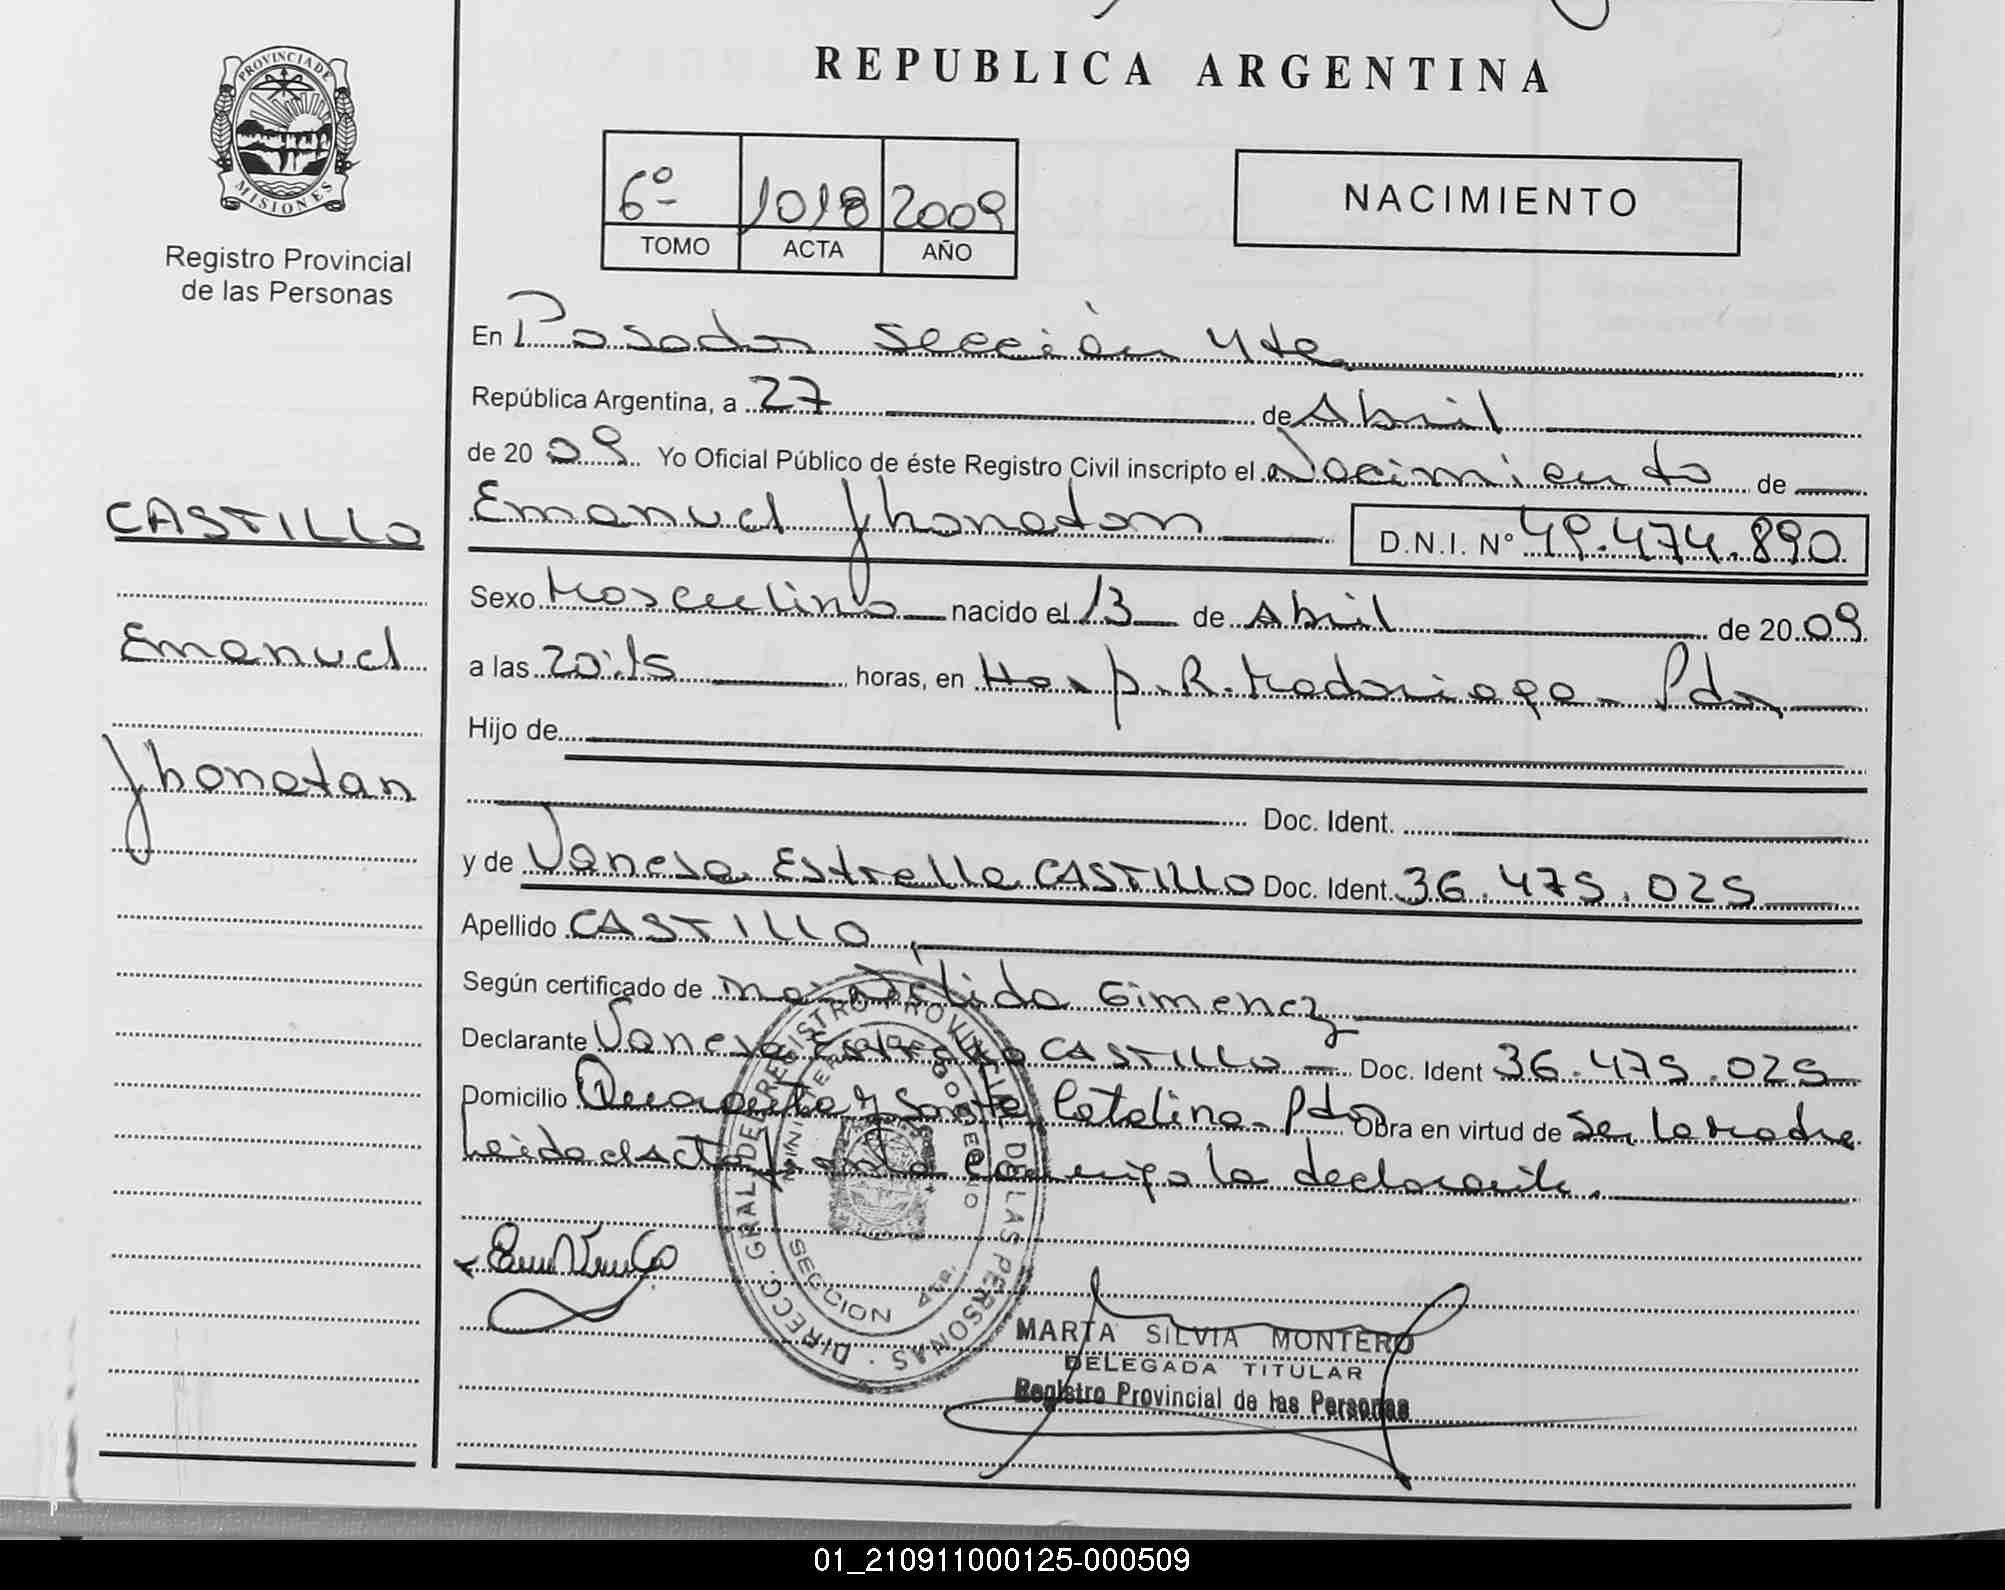 REPUBLICA ARGENTINA
PROVINCIA DE
MISIONES
Registro Provincial
de las Personas
6º 1018 2009
TOMO ACTA AÑO
NACIMIENTO
CASTILLO
Emanuel
Jhonatan
En Posadas sección 4ta
República Argentina, a 27 de Abril
de 2009 Yo Oficial Público de éste Registro Civil inscripto el Nacimiento de
Emanuel Jhonadan D.N.I. Nº 49.474.890
Sexo Masculino nacido el 13 de Abril de 2009
a las 20:15 horas, en Hosp. R. Madariaga - Pdas
Hijo de
Doc. Ident.
y de Vanesa Estrella CASTILLO Doc. Ident. 36.475.025
Apellido CASTILLO
Según certificado de Gimenez
Declarante Vanesa Estrella CASTILLO Doc. Ident 36.475.025
Domicilio y Santa Catalina - Pdas Obra en virtud de Ser la Madre
Leida el Acta conmigo la declarante.
DIRECC. GRAL. DEL REGISTRO PROVINCIAL DE LAS PERSONAS
MINISTERIO DE GOBIERNO
SECCION 4ta.
MARTA SILVIA MONTERO
DELEGADA TITULAR
Registro Provincial de las Personas
01_210911000125-000509